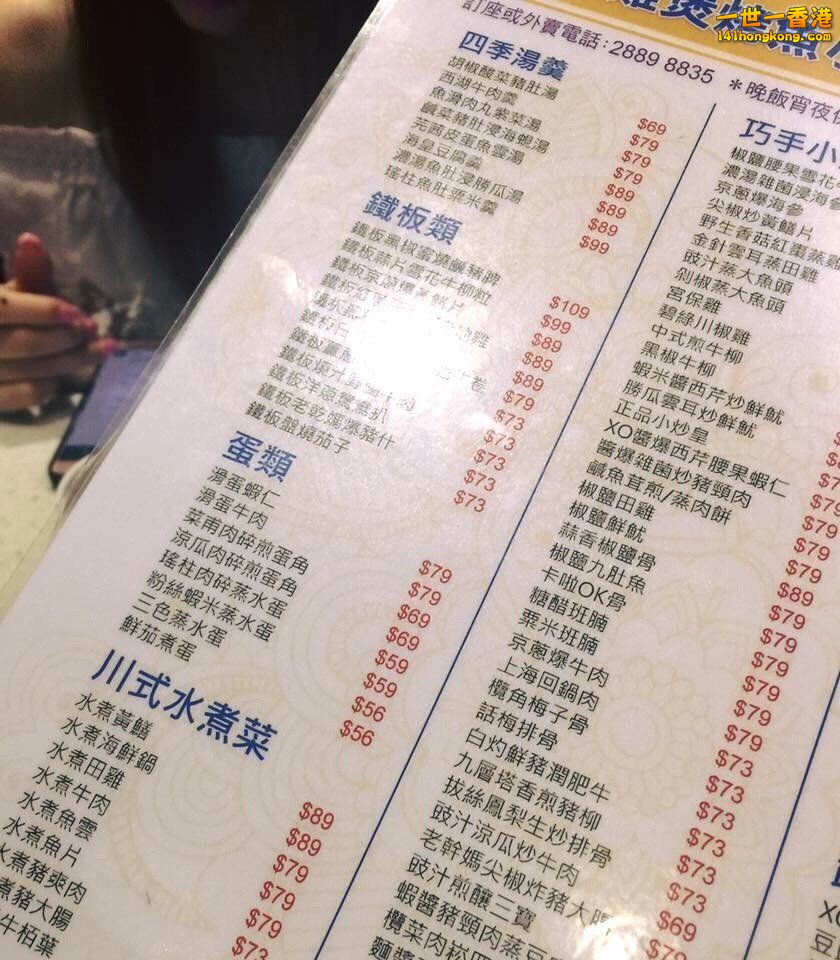 一世一香港
141hongkong.com
訂座或外賣電話：2889 8835
＊晚飯宵夜
四季湯羹
胡椒酸菜豬肚湯
西湖牛肉羹
魚滑肉丸紫菜湯
鹹菜豬肚浸海蜆湯
芫茜皮蛋魚雲湯
海皇豆腐羹
濃湯魚肚浸勝瓜湯
瑤柱魚肚粟米羹
$69
$79
$79
$89
$89
$89
$99
鐵板類
鐵板黑椒蜜燒鹹豬脾
鐵板蒜片雪花牛柳粒
鐵板京蔥爆黃鱔片
鐵板
鐵板
鐵板
鐵板
鐵板洋蔥鴛鴦扒
鐵板老乾媽爆豬什
鐵板盤燒茄子
$109
$99
$89
$89
$89
$79
$73
$73
$73
$73
$73
蛋類
滑蛋蝦仁
滑蛋牛肉
菜甫肉碎煎蛋角
涼瓜肉碎煎蛋角
瑤柱肉碎蒸水蛋
粉絲蝦米蒸水蛋
三色蒸水蛋
鮮茄煮蛋
$79
$79
$69
$69
$59
$59
$56
$56
川式水煮菜
水煮黃鱔
水煮海鮮鍋
水煮田雞
水煮牛肉
水煮魚雲
水煮魚片
水煮豬爽肉
煮豬大腸
牛栢葉
$89
$89
$79
$79
$79
$73
巧手小
椒鹽腰果雪花
濃湯雜菌浸海
京蔥爆海參
尖椒炒黃鱔片
野生香菇紅棗蒸雞
金針雲耳蒸田雞
豉汁蒸大魚頭
剁椒蒸大魚頭
宮保雞
碧綠川椒雞
中式煎牛柳
黑椒牛柳
蝦米醬西芹炒鮮魷
勝瓜雲耳炒鮮魷
正品小炒皇
XO醬爆西芹腰果蝦仁
醬爆雜菌炒豬頸肉
鹹魚茸煎/蒸肉餅
椒鹽田雞
椒鹽鮮魷
蒜香椒鹽骨
椒鹽九肚魚
卡啦OK骨
糖醋班腩
粟米班腩
京蔥爆牛肉
上海回鍋肉
欖角梅子骨
話梅排骨
白灼鮮豬潤肥牛
九層塔香煎豬柳
拔絲鳳梨生炒排骨
豉汁涼瓜炒牛肉
老幹媽尖椒炸豬大腸
豉汁煎釀三寶
蝦醬豬頸肉蒸豆
欖菜肉崧四
$79
$79
$79
$89
$79
$79
$79
$79
$79
$73
$73
$73
$73
$73
$69
$79